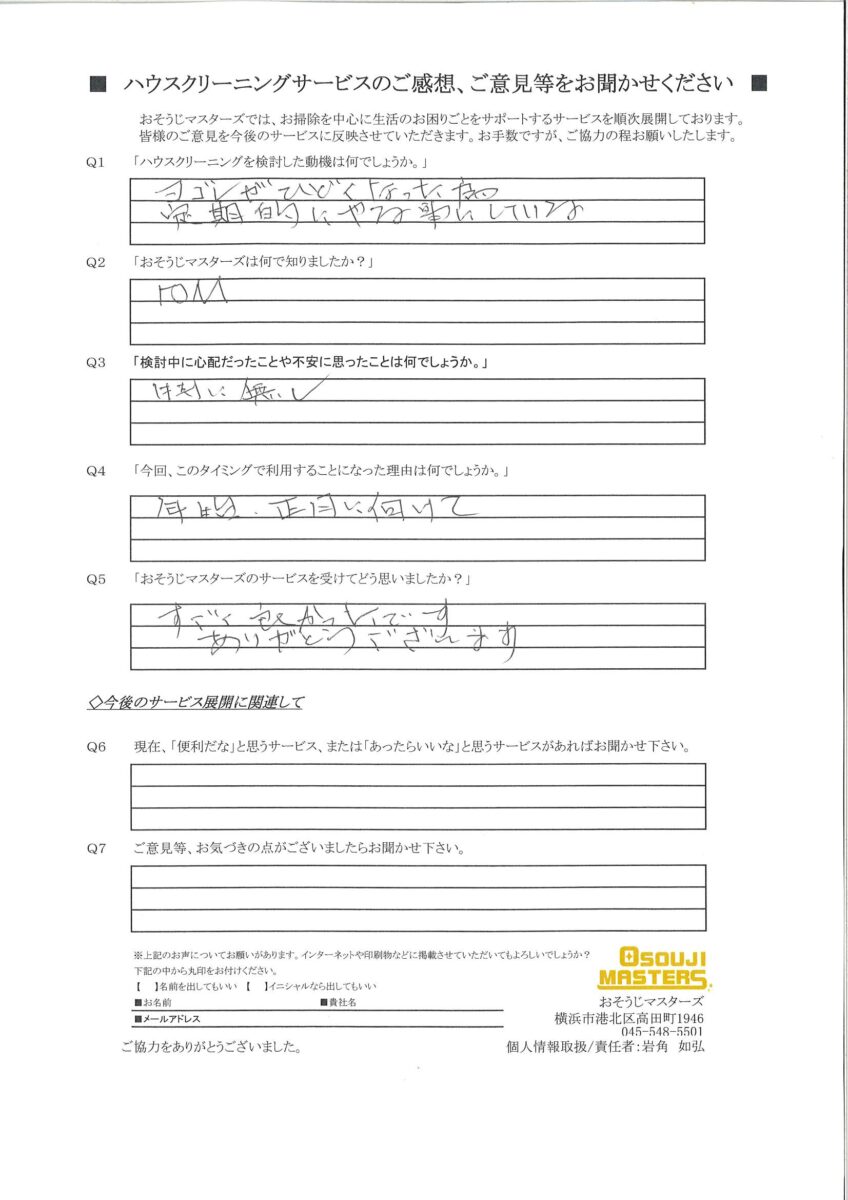 ■ ハウスクリーニングサービスのご感想、ご意見等をお聞かせください ■
おそうじマスターズでは、お掃除を中心に生活のお困りごとをサポートするサービスを順次展開しております。
皆様のご意見を今後のサービスに反映させていただきます。お手数ですが、ご協力の程お願いしたします。
Q1 「ハウスクリーニングを検討した動機は何でしょうか。」
ヨゴレがひどくなった為
定期的にやる事にしている
Q2 「おそうじマスターズは何で知りましたか?」
Q3 「検討中に心配だったことや不安に思ったことは何でしょうか。」
特に無し
Q4 「今回、このタイミングで利用することになった理由は何でしょうか。」
年始、正月に向けて
Q5 「おそうじマスターズのサービスを受けてどう思いましたか?」
すごく良かったです
ありがとうございます
◇今後のサービス展開に関連して
Q6 現在、「便利だな」と思うサービス、または「あったらいいな」と思うサービスがあればお聞かせ下さい。
Q7 ご意見等、お気づきの点がございましたらお聞かせ下さい。
※上記のお声についてお願いがあります。インターネットや印刷物などに掲載させていただいてもよろしいでしょうか?
下記の中から丸印をお付けください。
【 】名前を出してもいい 【 】イニシャルなら出してもいい
■お名前 ■貴社名
■メールアドレス
ご協力をありがとうございました。
OSOUJI
MASTERS.
おそうじマスターズ
横浜市港北区高田町1946
045-548-5501
個人情報取扱/責任者:岩角 如弘